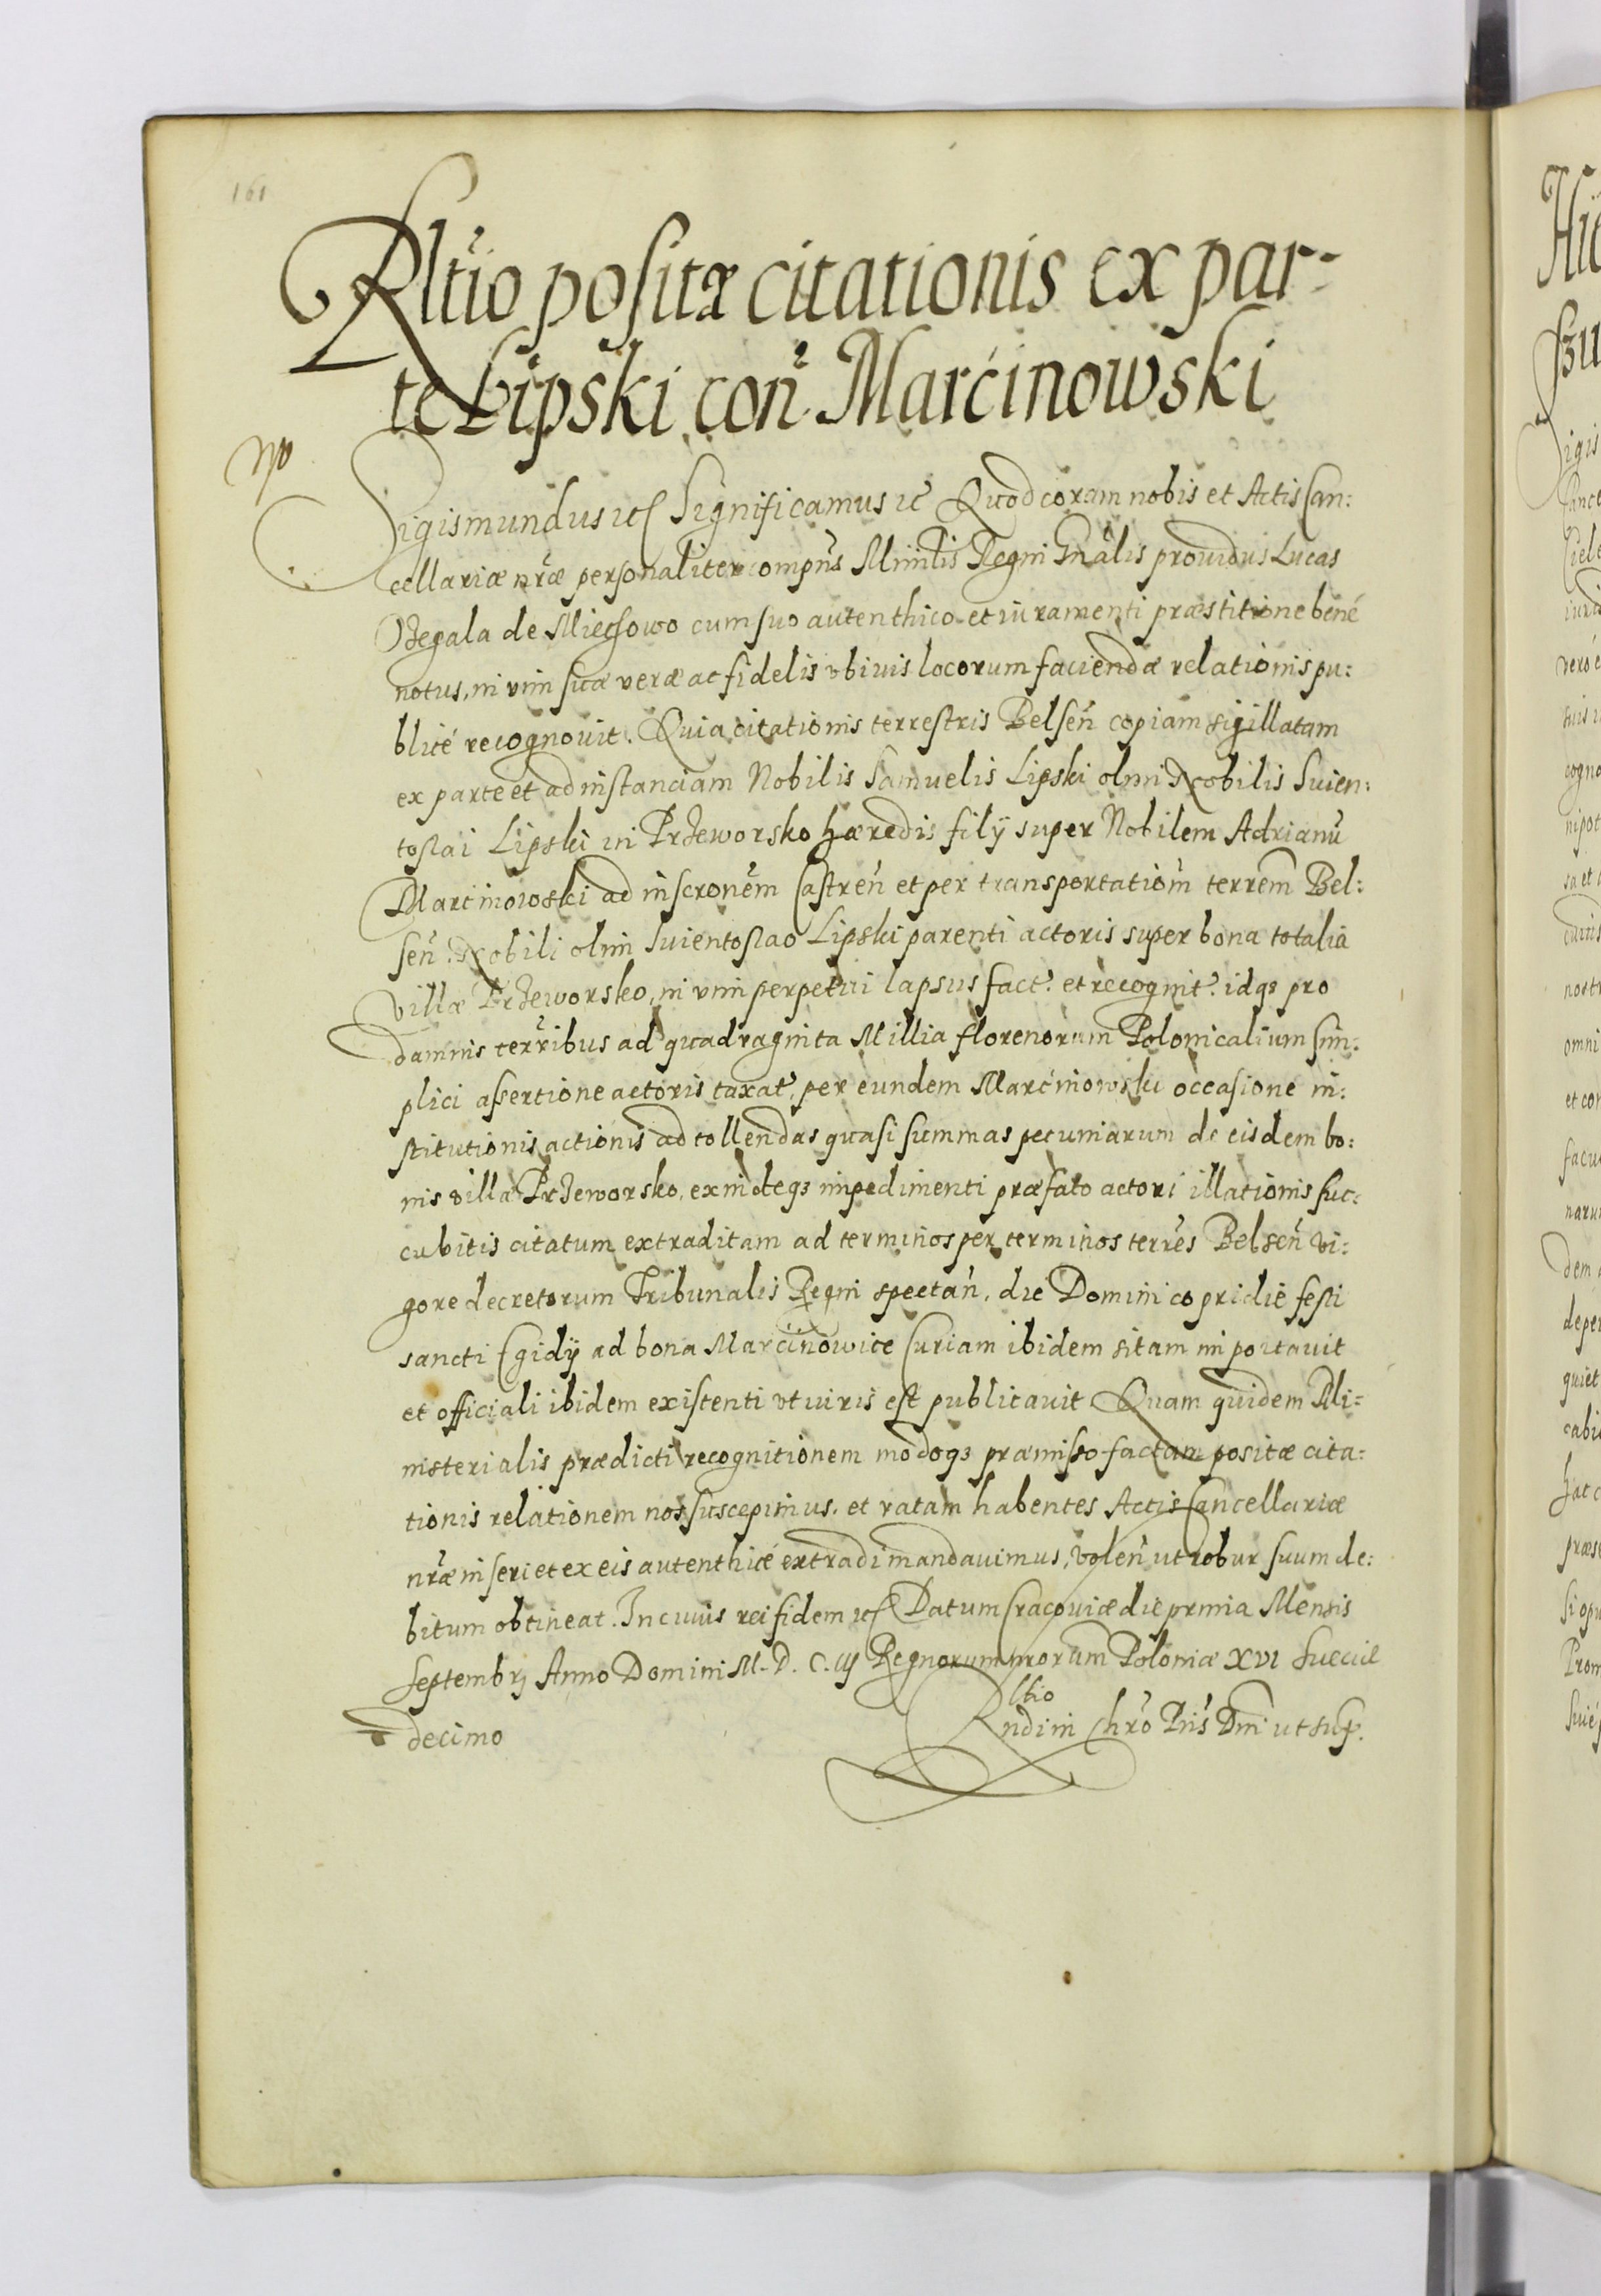 161
Rltio positæ citationis ex par-
te Lipski con Marcinowski
Sigismundus etc Significamus etc Quod coram nobis et Actis Can:
cellariæ nræ personaliter compns Minrlis Regni Gnalis providus Lucas
de cum suo autenthico et iuramenti præstitione bené
notus, in vim suæ veræ ac fidelis ubivis locorum faciendæ relationis pu:
blicé recognovit. Quia citationis terrestris Belsen copiam sigillatam
ex parte et ad instanciam Nobilis Samuelis Lipski olim Nobilis Suien:
toslai Lipski in Przeworsko hæredis filij super Nobilem Adrianu
Marcinowski ad inscronem Castren et per transportationem terrem Bel:
sen Nobili olim Suientoslao Lipski parenti actoris super bona totalia
villæ Przeworsko, in vim perpetui lapsus fact. et recognit. idq3 pro
damnis terribus ad quadraginta Millia florenorum Polonicalium sim:
plici assertione actoris taxat, per eundem Marcinowski occasione in:
stitutionis actionis ad tollendas quasi summas pecuniarum de eisdem bo:
nis villa Przeworsko, exindeq3 impedimenti præfato actori illationis suc:
cubitis citatum extraditam ad terminos per terminos terres Belsen vi:
gore decretorum Tribunalis Regni spectan, die Dominico pridie festi
sancti Egidij ad bona Marcinowice Curiam ibidem sitam importavit
et officiali ibidem existenti ut iuris est publicavit Quam quidem Mi:
nisterialis prædicti recognitionem modoq3 præmisso factam positæ cita:
tionis relationem nos suscepimus. et ratam habentes Actis Cancellariæ
nræ inseri et ex eis autenthicé extradi mandavimus, volen ut robur suum de:
bitum obtineat. In cuius rei fidem etc Datum Cracoviæ die prima Mensis
Septembrij Anno Domini M. D. C. iij Regnorum nrorum Poloniæ XVI Sueciæ
decimo
Rltio
Rndi in Chro Pris Dni ut sup.